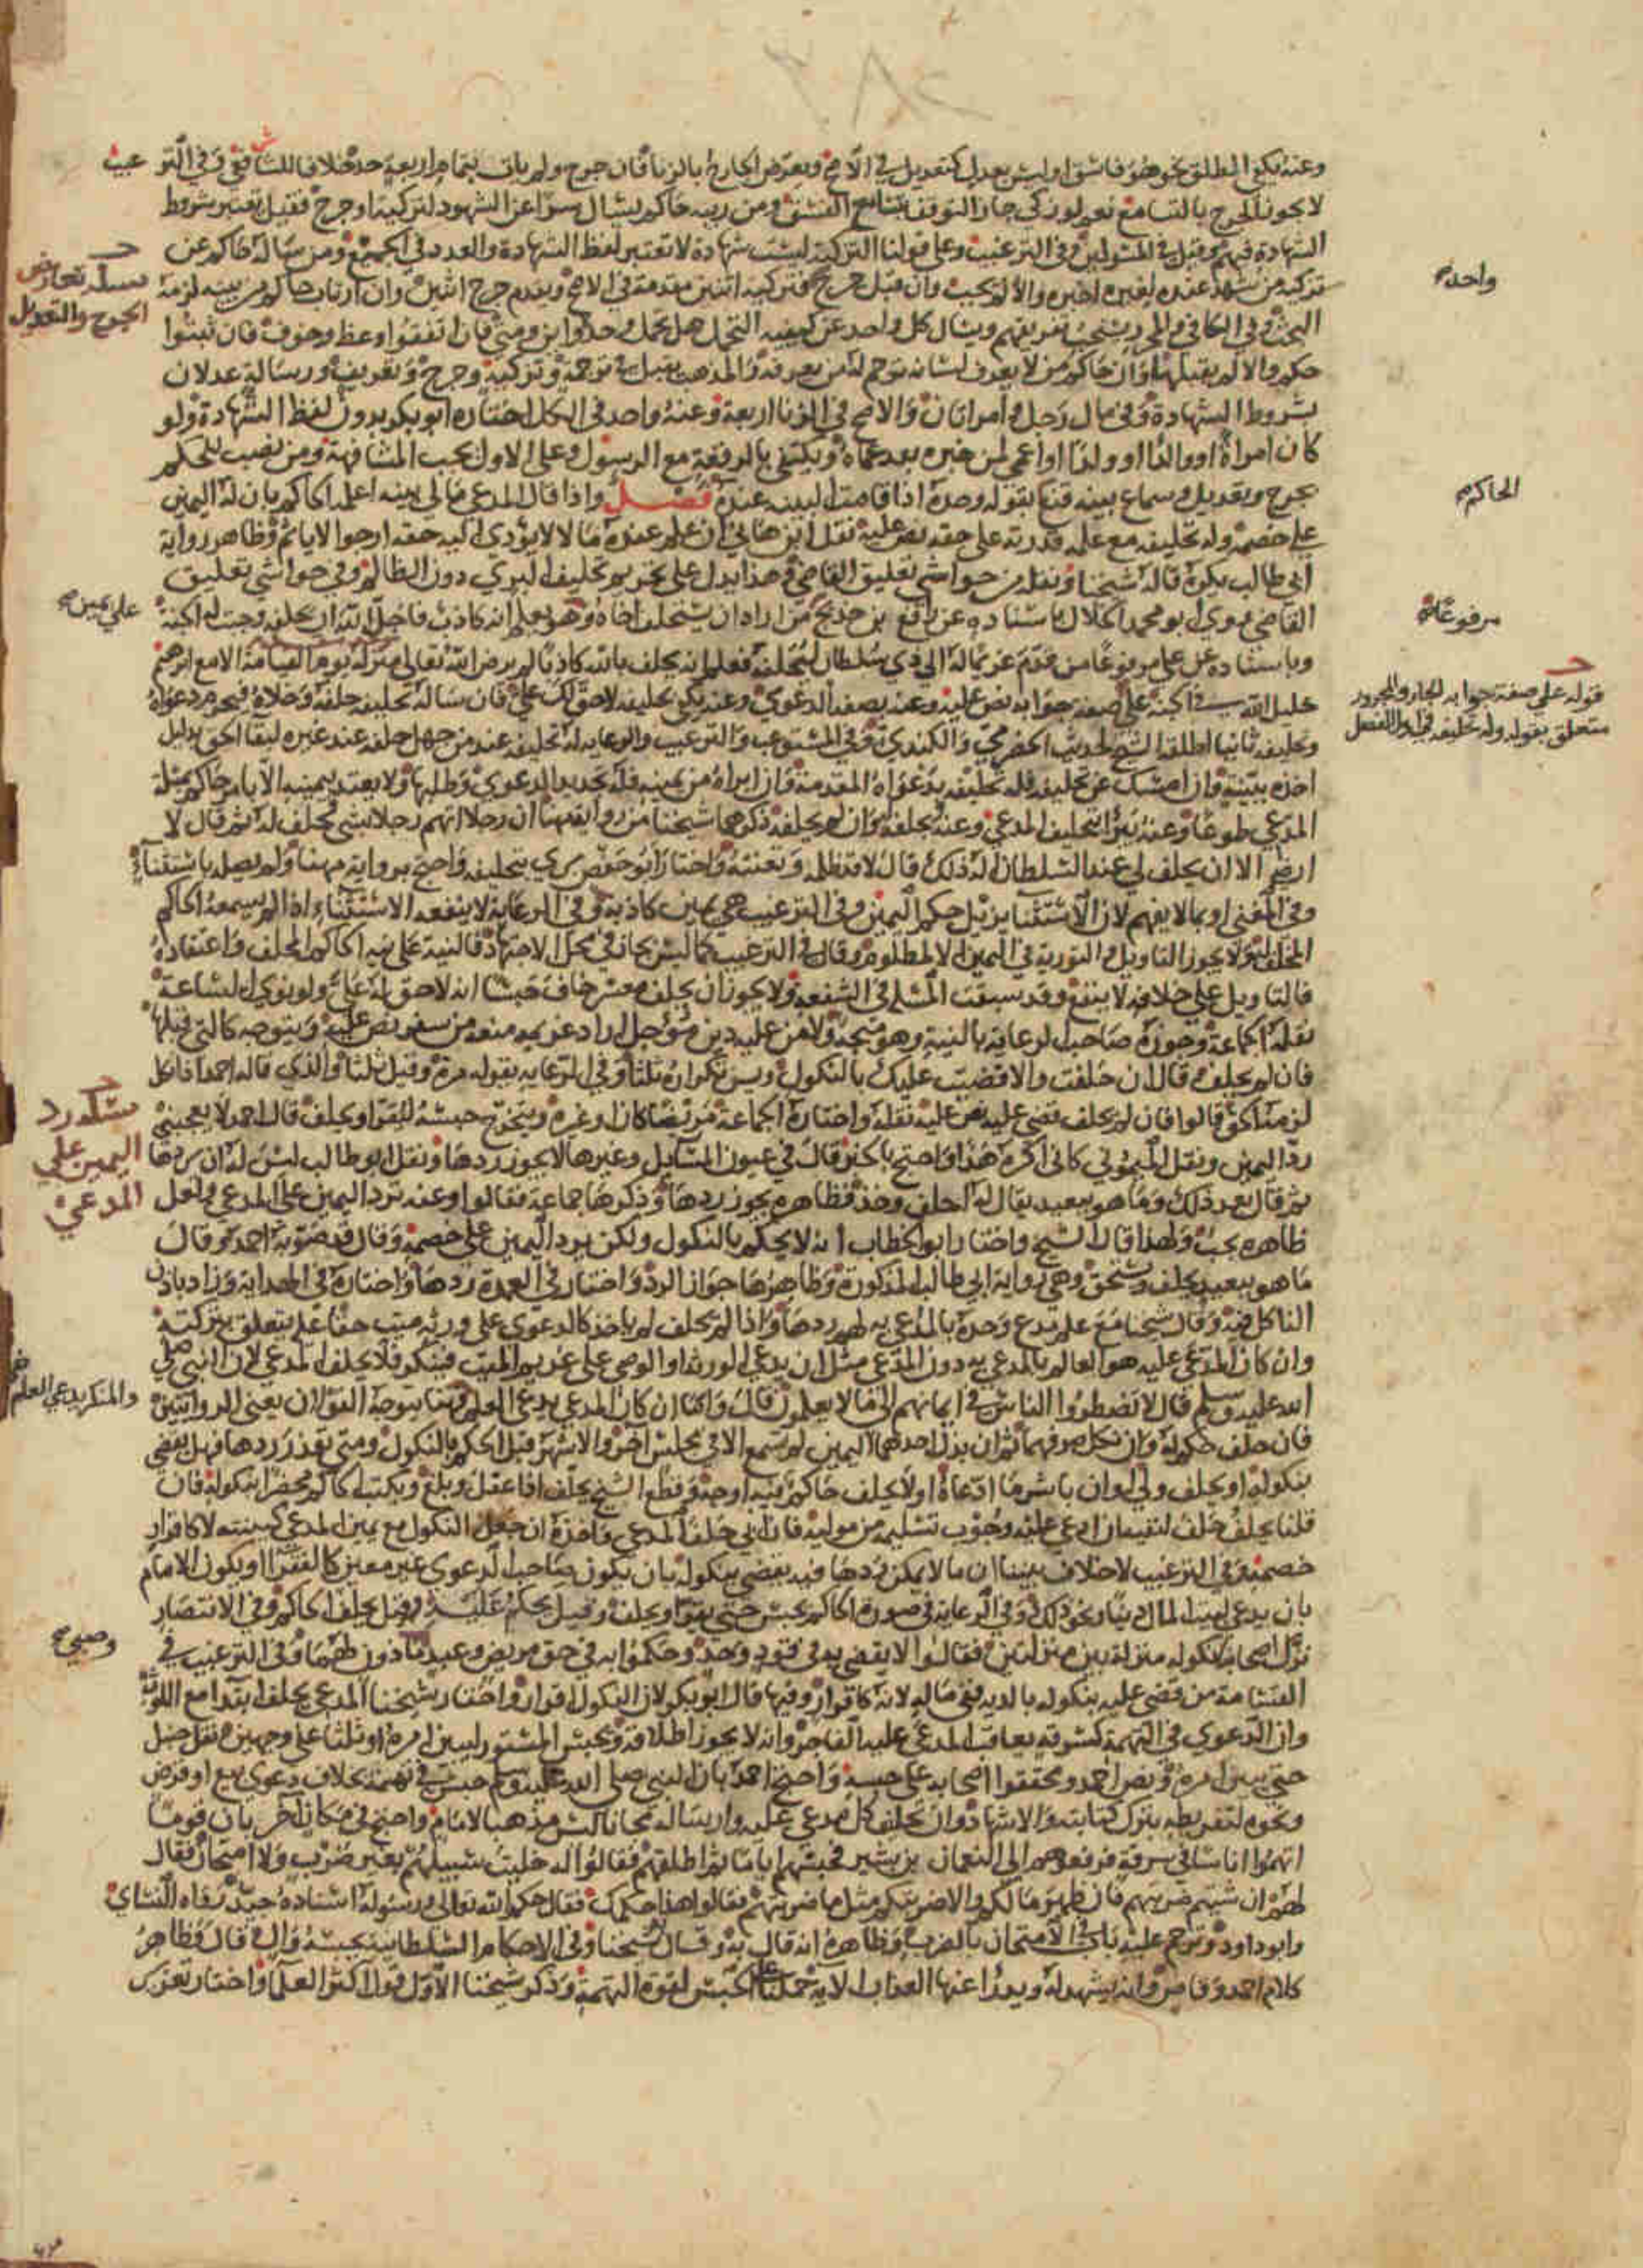 وعنه يكفي المطلق نحو هو فاسق او ليس بعدل كتعديل في الاصح ويعرض الجارح بالزنا فان صرح ولم يات بتمام اربعة حد خلافا للشافعي وفي الترغيب
لا يجوز الجرح بالتسامع نعم لو زكي جاز التوقف بتسامع الفسق ومن رتبه حاكم ليسال سرا عن الشهود لتزكية او جرح فقيل تعتبر شروط
الشهادة فيهم وقيل في المسئولين وفي الترغيب وعلى قولنا التزكية ليست شهادة لا تعتبر لفظ الشهادة والعدد في الجميع ومن ساله حاكم عن
تزكية من شهد عنده اخبره والا لم يجب وان قبل جرح فتزكية اثنين مقدمة في الاصح ويقدم جرح اثنين وان ارتاب حاكم من بينة لزمه
البحث وفي الكافي والمحرر يستحب تفريقهم ويسال كل واحد عن كيفية التحمل هل تحمل وحده واين ومتى فان اتفقوا وعظ وخوف فان ثبتوا
حكم والا لم يقبلها وان حاكم من لا يعرف لسانه ترجم له من يعرفه والمذهب يقبل في ترجمة وتزكية وجرح وتعريف ورسالة عدلان
بشروط الشهادة وفي مال رجل وامراتان والاصح في الزنا اربعة وعنه واحد في الكل اختاره ابو بكر بدون لفظ الشهادة ولو
كان امراة او والدا او ولدا او اعمى لمن خبره بعد عماه ويكتفى بالرقعة مع الرسول وعلى الاول يجب المشافهة ومن نصب للحكم
بجرح وتعديل وسماع بينة قنع بقوله وحده اذا قامت البينة عنده فصل واذا قال المدعي مالي بينة اعلمه الحاكم بان له اليمين
على خصمه وله تحليفه مع علمه قدرته على حقه نص عليه نقل ابن هاني ان علم عنده مالا لا يؤدي اليه حقه ارجوا لا ياثم وظاهر رواية
ابي طالب يكره قاله شيخنا ونقله من حواشي تعليق القاضي وهذا يدل على تحريم تحليف البري دون الظالم وفي حواشي تعليق
القاضي روى ابو محمد الخلال باسناده عن رافع بن خديج من اراد ان يستحلف اخاه وهو يعلم انه كاذب فاجل الله ان يحلفه وجبت له الجنة
وباسناده عن علي مرفوعا من قدم غريما له الى ذي سلطان ليستحلفه فعلم انه يحلف بالله كاذبا لم يرض الله تعالى منزلة يوم القيامة الا مع ابرهيم
خليل الله في الجنة على صفة جوابه نص عليه وعنه بصفة الدعوى وعنه يكفي تحليفه لا حق لك علي فان ساله تحليفه حلفه وخلاه فيحرم دعواه
وتحليفه ثانيا اطلقه الشيخ لحديث الحضرمي والكندي وفي المستوعب والترغيب والرعاية له تحليفه عند من جهل حلفه عند غيره لبقا الحق بدليل
اخذه ببينة وان امسك عن تحليفه فله تحليفه بدعواه المقدمة وان ابراه من يمينه فله تجديد الدعوى وطلبها ولا يعتد بيمينه الا بامر حاكم بمسئلة
المدعي طوعا وعنه يبرا بتحليف المدعي وعنه بحلفه وان لم يحلفه ذكرهما شيخنا من رواية مهنا ان رجلا اتهم رجلا بشي فحلف له ثم قال لا
ارضى الا ان يحلف لي عند السلطان له ذلك قال لا قد ظلمه وتعنته واختار ابو حفص ... تحليفه واحتج برواية مهنا ولو يصله باستثناء
وفي المغني او بما لا يفهم لان الاستثنا يزيل حكم اليمين وفي الترغيب هي يمين كاذبة وفي الرعاية لا ينفعه الاستثناء اذا لم يسمعه الحاكم
المحلف له ولا يجوز التاويل والتورية في اليمين الا لمظلوم وقال في الترغيب ظلما ليس بجار في محل الاجتهاد فالنية على نية الحاكم المحلف واعتقاده
فالتاويل على خلافه لا ينفع وقد سبقت المسئلة في الشفعة ولا يجوز ان يحلف معسر خاف حبسا انه لا حق له علي ولو نوى الساعة
نقله الجماعة وجوزه صاحب الرعاية بالنية وهو متجه ولا من عليه دين مؤجل اراد غريمه منعه من سفر نص عليه ويتوجه كالتي قبلها
فان لم يحلف قال ان حلفت والا قضيت عليك بالنكول ويسن تكراره ثلثا وفي الرعاية بقوله مرة وقيل ثلثا والذي قاله احمد اذا نكل
لزمه الحق قالوا فان لم يحلف قضي عليه نص عليه نقله واختاره الجماعة مريضا كان او غيره ويتخرج حبسه ليقر او يحلف قال احمد لا يعجبني
رد اليمين ونقل الميموني كاني اكره هذا واحتج بالخبر قال في عيون المسايل وغيرها لا يجوز ردها ونقل ابو طالب ليس له ان يردها
ثم قال بعد ذلك وما هو ببعيد يقال له احلف وخذ فظاهره يجوز ردها وذكرها جماعة فقالوا وعنه ترد اليمين على المدعي ولعل
ظاهره يجب ولهذا قال الشيخ واختار ابو الخطاب انه لا يحكم بالنكول ولكن يرد اليمين على خصمه وقال قد صوبه احمد وقال
ما هو ببعيد يحلف ويستحق وهي رواية ابي طالب المذكورة وظاهرها جواز الرد واختار في العمدة ردها واختاره في الهداية وزاد باذن
الناكل فيه وقال شيخنا مع علم مدع وحده بالمدعي به لهم ردها واذا لم يحلف لم ياخذ كالدعوى على ورثة ميت حقا عليه يتعلق بتركته
وان كان المدعى عليه هو العالم بالمدعي به دون المدعي مثل ان يدعي الورثة او الوصي على غريم الميت فينكر فلا يحلف المدعي لان النبي صلى
الله عليه وسلم قال لا تضطروا الناس في ايمانهم الى ما لا يعلمون قال واما ان كان المدعي يدعي العلم فهنا يتوجه القولان يعني الروايتين
فان حلف حكم له وان نكل صرفهما ثم ان بذل احدهما اليمين لم تسمع الا في مجلس اخر والاشهر قبل الحكم بالنكول ومتى تعذر ردها فهل يقضى
بنكوله او يحلف ولي او ان باشر ما ادعاه اولا يحلف حاكم فيه اوجه وقطع الشيخ يحلف اذا عقل وبلغ ويكتب الحاكم محضرا بنكوله فان
قلنا يحلف حلف لنفيه ان ادعي عليه وجوب تسليمه من موليه فان ابى حلف المدعي واخذه ان جعل النكول مع يمين المدعي كبينته لا كاقرار
خصمه وفي الترغيب لا خلاف بيننا ان ما لا يمكن ردها فيه يقضي بنكوله بان يكون صاحب الدعوى غير معين كالفقرا او يكون الامام
بان يدعي لبيت المال دينا ونحو ذلك وفي الرعاية في صورة الحاكم يحبس حتى يقر او يحلف وقيل يحكم عليه وقيل يحلف الحاكم وفي الانتصار
نزل اصحابنا نكوله منزلة بين منزلتين فقالوا لا يقضى به في قود وحد وحكموا به في حق مريض وعبد ماذون لهما وفي الترغيب في
القسامة من قضي عليه بنكوله بالدية ففي ماله لانه كاقرار وفيها قال ابو بكر لان النكول اقرار واختار شيخنا المدعي يحلف ابتدا مع اللوث
وان الدعوى في التهمة كسرقة يعاقب المدعى عليه الفاجر وانه لا يجوز اطلاقه ويحبس المستور ليبين امره او ثلثا على وجهين نقل حنبل
حتى يبين امره ونص احمد ومحققوا اصحابه على حبسه واحتج احمد بان النبي صلى الله عليه وسلم حبس في تهمة بخلاف دعوى بيع او قرض
ونحوه لتفريطه بترك كتابته والاشهاد وان تحليف كل مدعى عليه وارساله مجانا ليس مذهب الامام واحتج في مكان اخر بان قوما
اتهموا اناسا في سرقة فرفعوهم الى النعمان بن بشير فحبسهم اياما ثم اطلقهم فقالوا له خليت سبيلهم بغير ضرب ولا امتحان فقال
لهم ان شيتم ضربتهم فان ظهر مالكم والا ضربتكم مثل ما ضربتهم فقالوا هذا حكمك فقال حكم الله تعالى ورسوله اسناده جيد رواه النساي
وابو داود وترجم عليه باب في الامتحان بالضرب وظاهره انه قال به وقال شيخنا وفي الاحكام السلطانية يحبسه وال قال فظاهر
كلام احمد وقاض وانه يشهد له ويدرؤا عنها العذاب الاية حملنا على الحبس لقوة التهمة وذكر شيخنا الاول قول اكثر العلما واختار تعزير
مسئلة تعارض
الجرح والتعديل
واحد صح
الحاكم صح
على يمين صح
مرفوعا صح
قوله على صفة جوابه الجار والمجرور
متعلق بقوله وله تحليفه في اول الفصل
مسئلة رد
اليمين على
المدعي
والمنكر يدعي العلم
وصبي صح